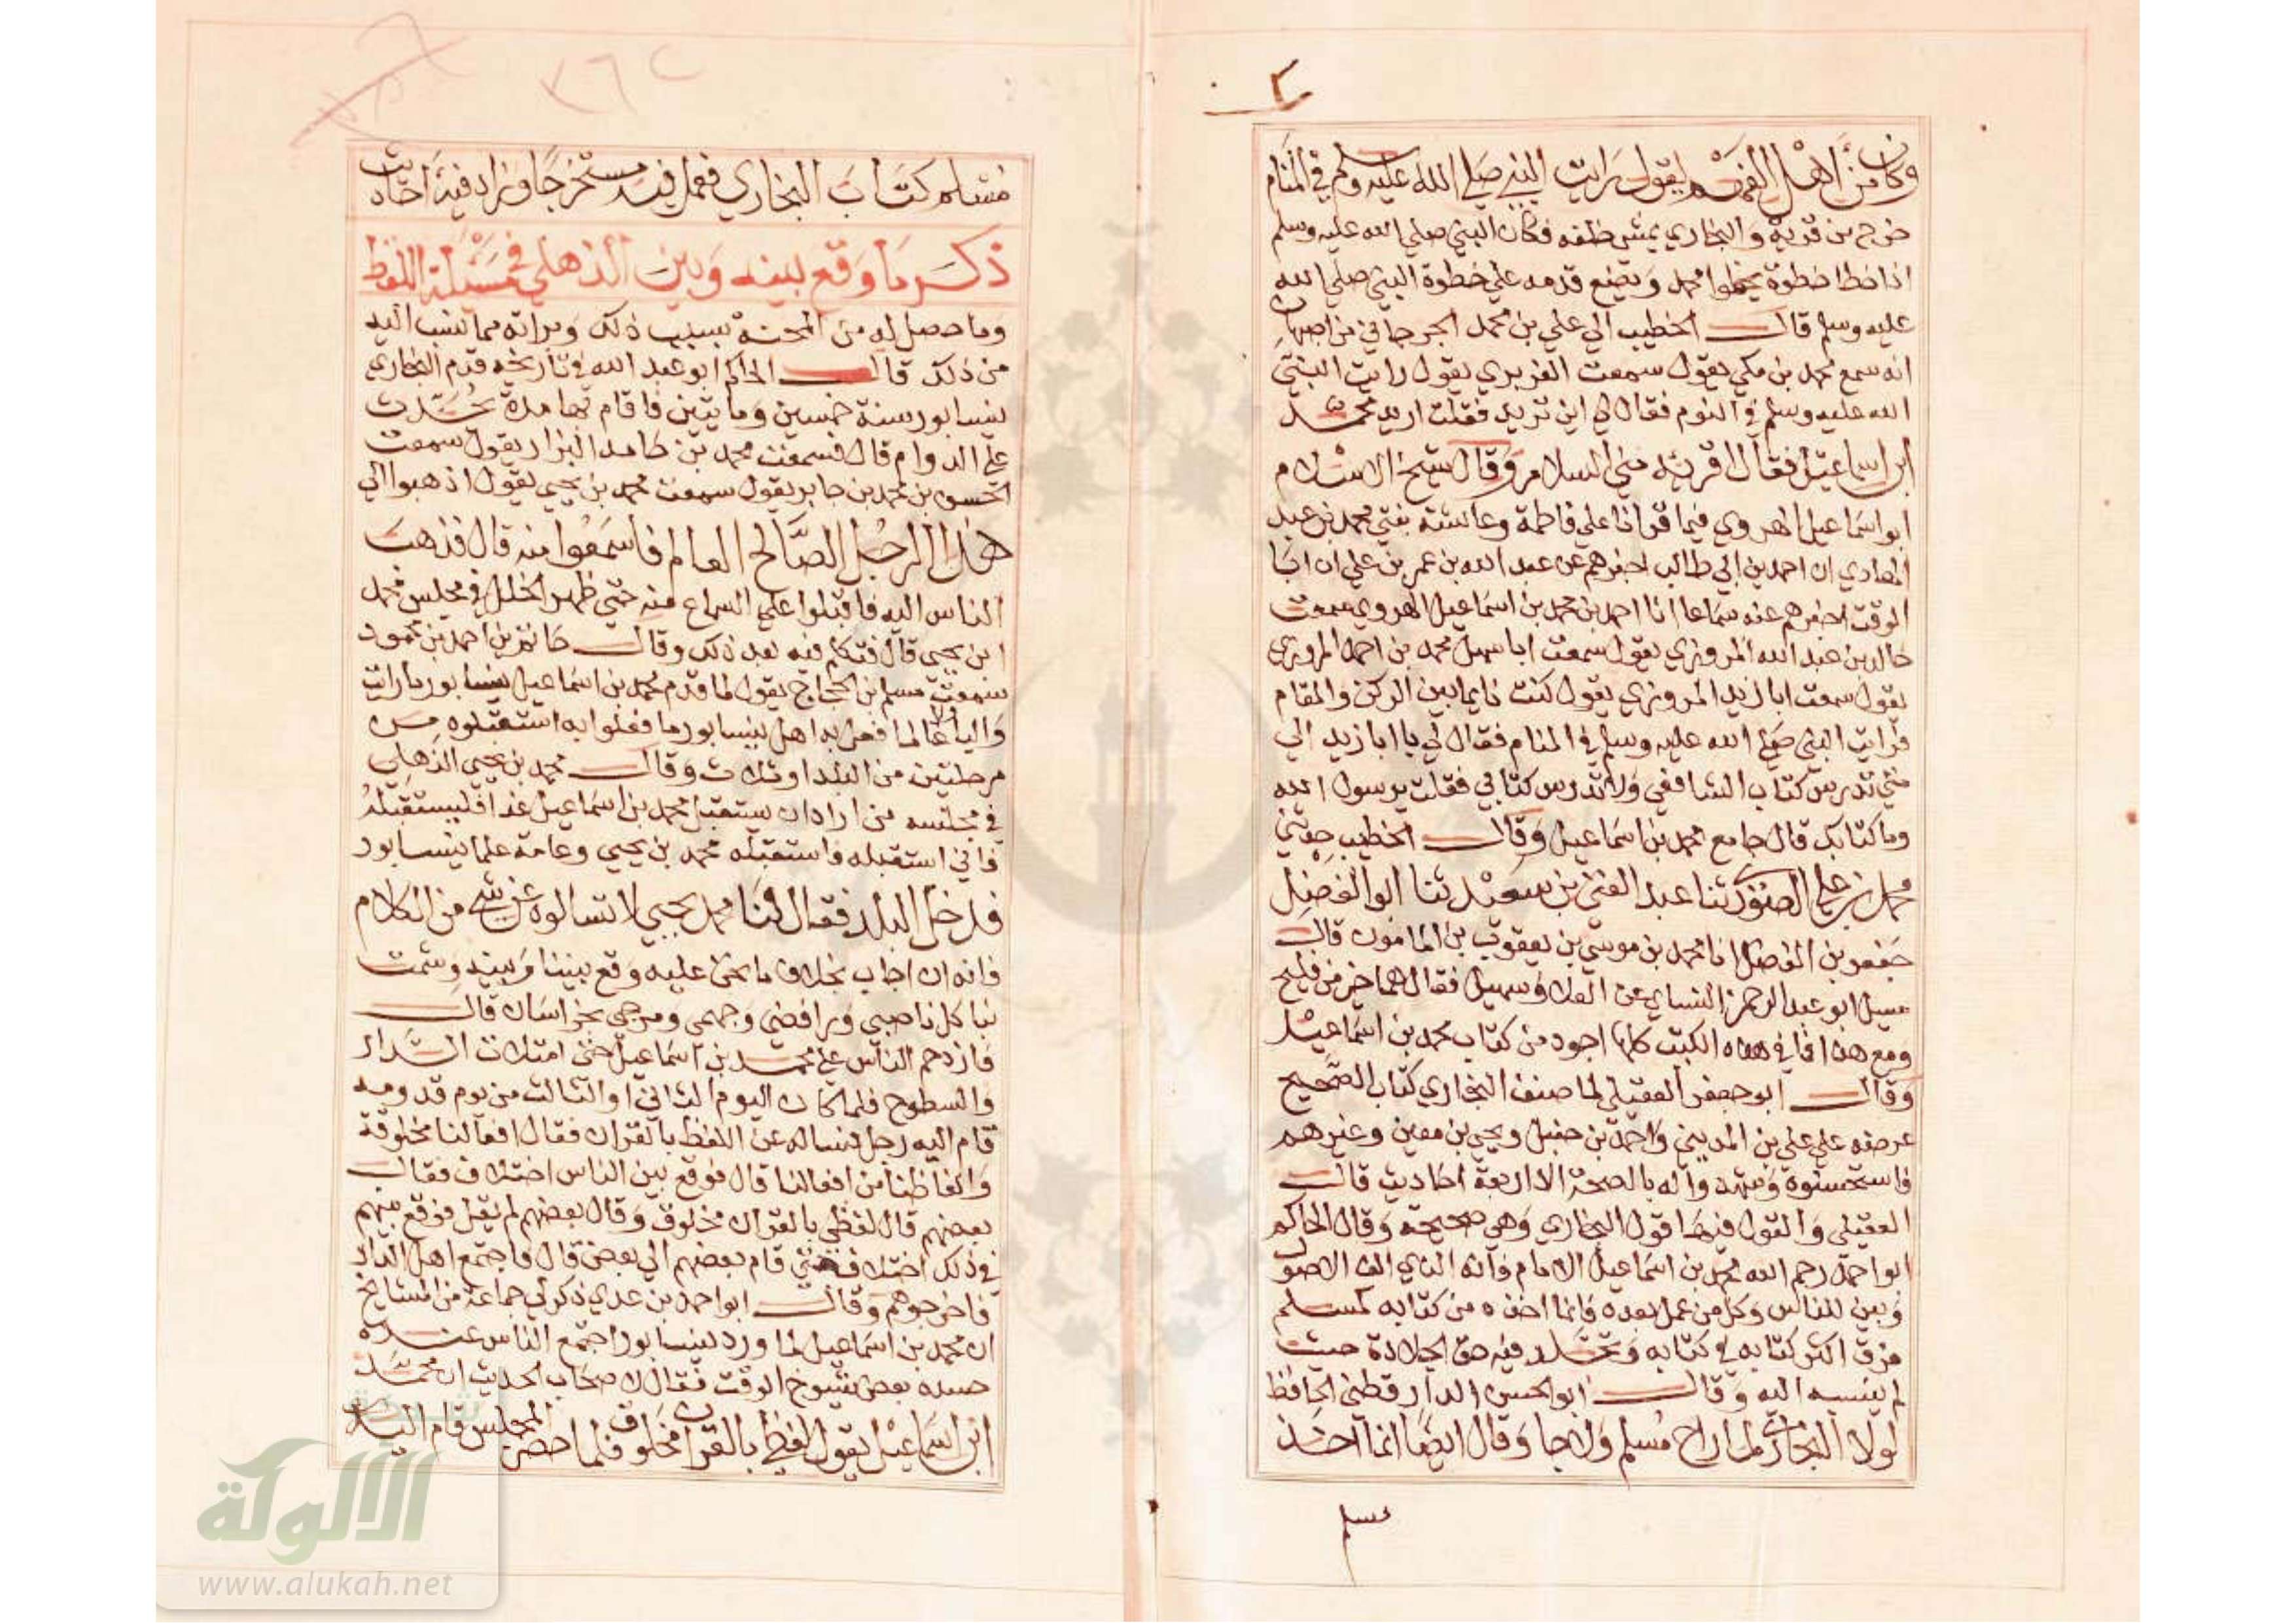 وكان من اهل الفهم يقول رايت النبي صلي الله عليه وسلم في المنام
خرج من قرية والبخاري يمشي خلفه فكان النبي صلي الله عليه وسلم
اذا خطا خطوة يخطوا محمد ويضع قدمه علي خطوة النبي صلي الله
عليه وسلم قال الخطيب الي علي بن محمد الجرجاني من اصبهان
انه سمع محمد بن مكي يقول سمعت الفربري يقول رايت النبي
الله عليه وسلم في النوم فقال لي اين تريد فقلت اريد محمد
ابن اسماعيل فقال اقريه مني السلام وقال شيخ الاسلام
ابو اسماعيل الهروي فيما قراتا علي فاطمة وعائشة بنتي محمد بن عبد
الهادي ان احمد بن ابي طالب اخبرهم عن عبد الله بن عمر بن علي ان ابا
الوقت اخبرهم عنه سماعا انا احمد بن محمد بن اسماعيل الهروي سمعت
خالد بن عبد الله المروزي يقول سمعت ابا سهل محمد بن احمد المروزي
يقول سمعت ابا زيد المروزي يقول كنت نايما بين الركن والمقام
فرايت النبي صلي الله عليه وسلم في المنام فقال لي يا ابا زيد الي
متي تدرس كتاب الشافعي ولا تدرس كتابي فقلت يرسول الله
وما كتابك قال جامع محمد بن اسماعيل وقال الخطيب حدثني
محمد بن علي الصوري ثنا عبد الغني بن سعيد ثنا ابو الفضل
جعفر بن الفضل انا محمد بن موسي بن يعقوب بن المامون قال
سيل ابو عبد الرحمن النساي عن العلا وسهيل فقال هما خير من فليح
ومع هذا فما في هذه الكتب كلها اجود من كتاب محمد بن اسماعيل
وقال ابو جعفر العقيلي لما صنف البخاري كتاب الصحيح
عرضه علي علي بن المديني واحمد بن حنبل ويحيي بن معين وغيرهم
فاستحسنوه وشهدوا له بالصحة الا اربعة احاديث قال
العقيلي والقول فيها قول البخاري وهي صحيحة وقال الحاكم
ابو احمد رحم الله محمد بن اسماعيل الامام فانه الذي الف الاصول
وبين للناس وكل من عمل بعده فانما اخذه من كتابه كمسلم
فرق اكثر كتابه في كتابه وتجلد فيه حق الجلادة حيث
لم ينسبه اليه وقال ابو الحسن الدارقطني الحافظ
لولا البخاري لما راح مسلم ولا جا وقال ايضا انما اخذ
مسلم
مسلم كتاب البخاري فعمل فيه مستخرجا وزاد فيه احاديث
ذكر ما وقع بينه وبين الذهلي في مسئلة اللفظ
وما حصل له من المحنة بسبب ذلك وبراته مما ينسب اليه
من ذلك قال الحاكم ابو عبد الله في تاريخه قدم البخاري
نيسابور سنة خمسين ومايتين فاقام بها مدة يحدث
علي الدوام قال فسمعت محمد بن حامد البزار يقول سمعت
الحسن بن محمد بن جابر يقول سمعت محمد بن يحيي يقول اذهبوا الي
هذا الرجل الصالح العالم فاسمعوا منه قال فذهب
الناس اليه فاقبلوا علي السماع منه حتي ظهر الخلل في مجلس محمد
ابن يحيي قال فتكلم فيه بعد ذلك وقال حاتم بن احمد بن محمود
سمعت مسلم بن الحجاج يقول لما قدم محمد بن اسماعيل نيسابور ما رايت
واليا ولا عالما فعل به اهل نيسابور ما فعلوا به استقبلوه من
مرحلتين من البلد او ثلاث وقال محمد بن يحيي الذهلي
في مجلسه من اراد ان يستقبل محمد بن اسماعيل غدا فليستقبله
فاني استقبله فاستقبله محمد بن يحيي وعامة علما نيسابور
فدخل البلد فقال لنا محمد يحيي لا تسالوه عن شي من الكلام
فانه ان اجاب بخلاف ما نحن عليه وقع بيننا وبينه وشمت
بنا كل ناصبي ورافضي وجهمي ومرجي بخراسان قال
فازدحم الناس علي محمد بن اسماعيل حتي امتلات الدار
والسطوح فلما كان اليوم الثاني او الثالث من يوم قدومه
قام اليه رجل فساله عن اللفظ بالقران فقال افعالنا مخلوقة
والفاظنا من افعالنا قال فوقع بين الناس اختلاف فقال
بعضهم قال لفظي بالقران مخلوق وقال بعضهم لم يقل فوقع بينهم
في ذلك اختلاف حتي قام بعضهم الي بعض قال فاجتمع اهل الدار
فاخرجوهم وقال ابو احمد بن عدي ذكر لي جماعة من المشايخ
ان محمد بن اسماعيل لما ورد نيسابور اجتمع الناس عنده
حسده بعض شيوخ الوقت فقال لاصحاب الحديث ان محمد
ابن اسماعيل يقول لفظي بالقران مخلوق فلما حضر المجلس قام اليه
الألوكة
www.alukah.net